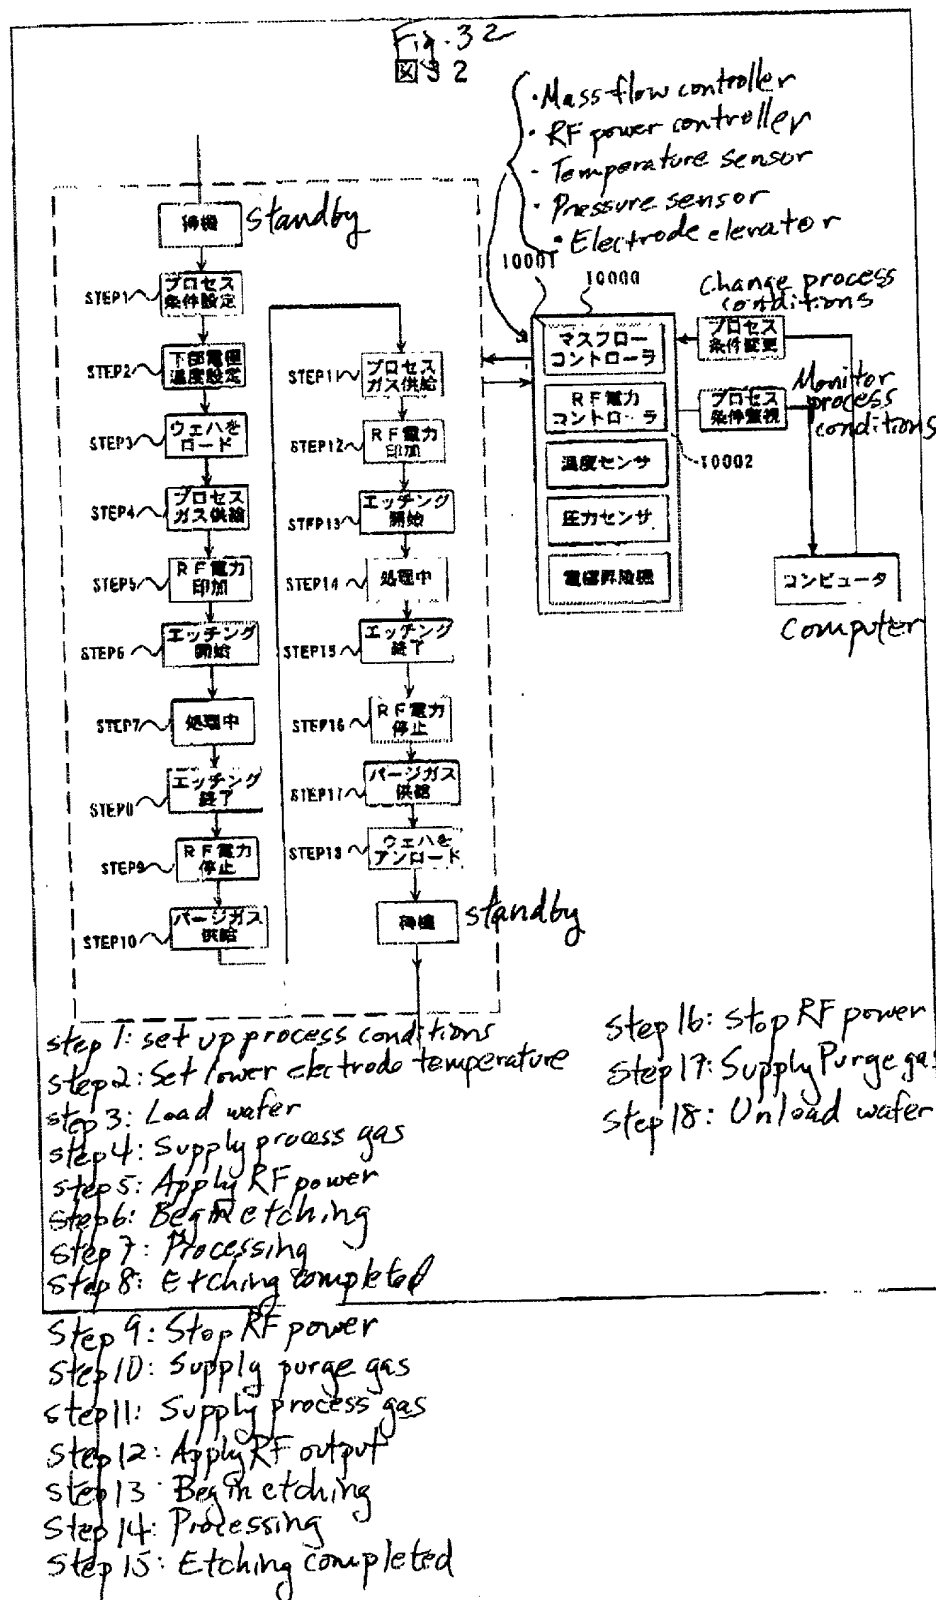 Fig. 32
図32
・Mass flow controller
・RF power controller
・Temperature sensor
・Pressure sensor
・Electrode elevator
待機
standby
STEP1
プロセス
条件設定
STEP2
下部電極
温度設定
STEP3
ウェハを
ロード
STEP4
プロセス
ガス供給
STEP5
RF電力
印加
STEP6
エッチング
開始
STEP7
処理中
STEP8
エッチング
終了
STEP9
RF電力
停止
STEP10
パージガス
供給
STEP11
プロセス
ガス供給
STEP12
RF電力
印加
STEP13
エッチング
開始
STEP14
処理中
STEP15
エッチング
終了
STEP16
RF電力
停止
STEP17
パージガス
供給
STEP18
ウェハを
アンロード
待機
standby
10001
10000
マスフロー
コントローラ
RF電力
コントローラ
温度センサ
圧力センサ
電極昇降機
10002
Change process
conditions
プロセス
条件変更
Monitor
process
conditions
プロセス
条件監視
コンピュータ
Computer
step 1: set up process conditions
step 2: Set lower electrode temperature
step 3: Load wafer
step 4: Supply process gas
step 5: Apply RF power
step 6: Begin etching
step 7: Processing
Step 8: Etching completed
Step 9: Stop RF power
Step 10: Supply purge gas
step 11: Supply process gas
Step 12: Apply RF output
Step 13: Begin etching
Step 14: Processing
Step 15: Etching completed
Step 16: Stop RF power
Step 17: Supply Purge gas
Step 18: Unload wafer